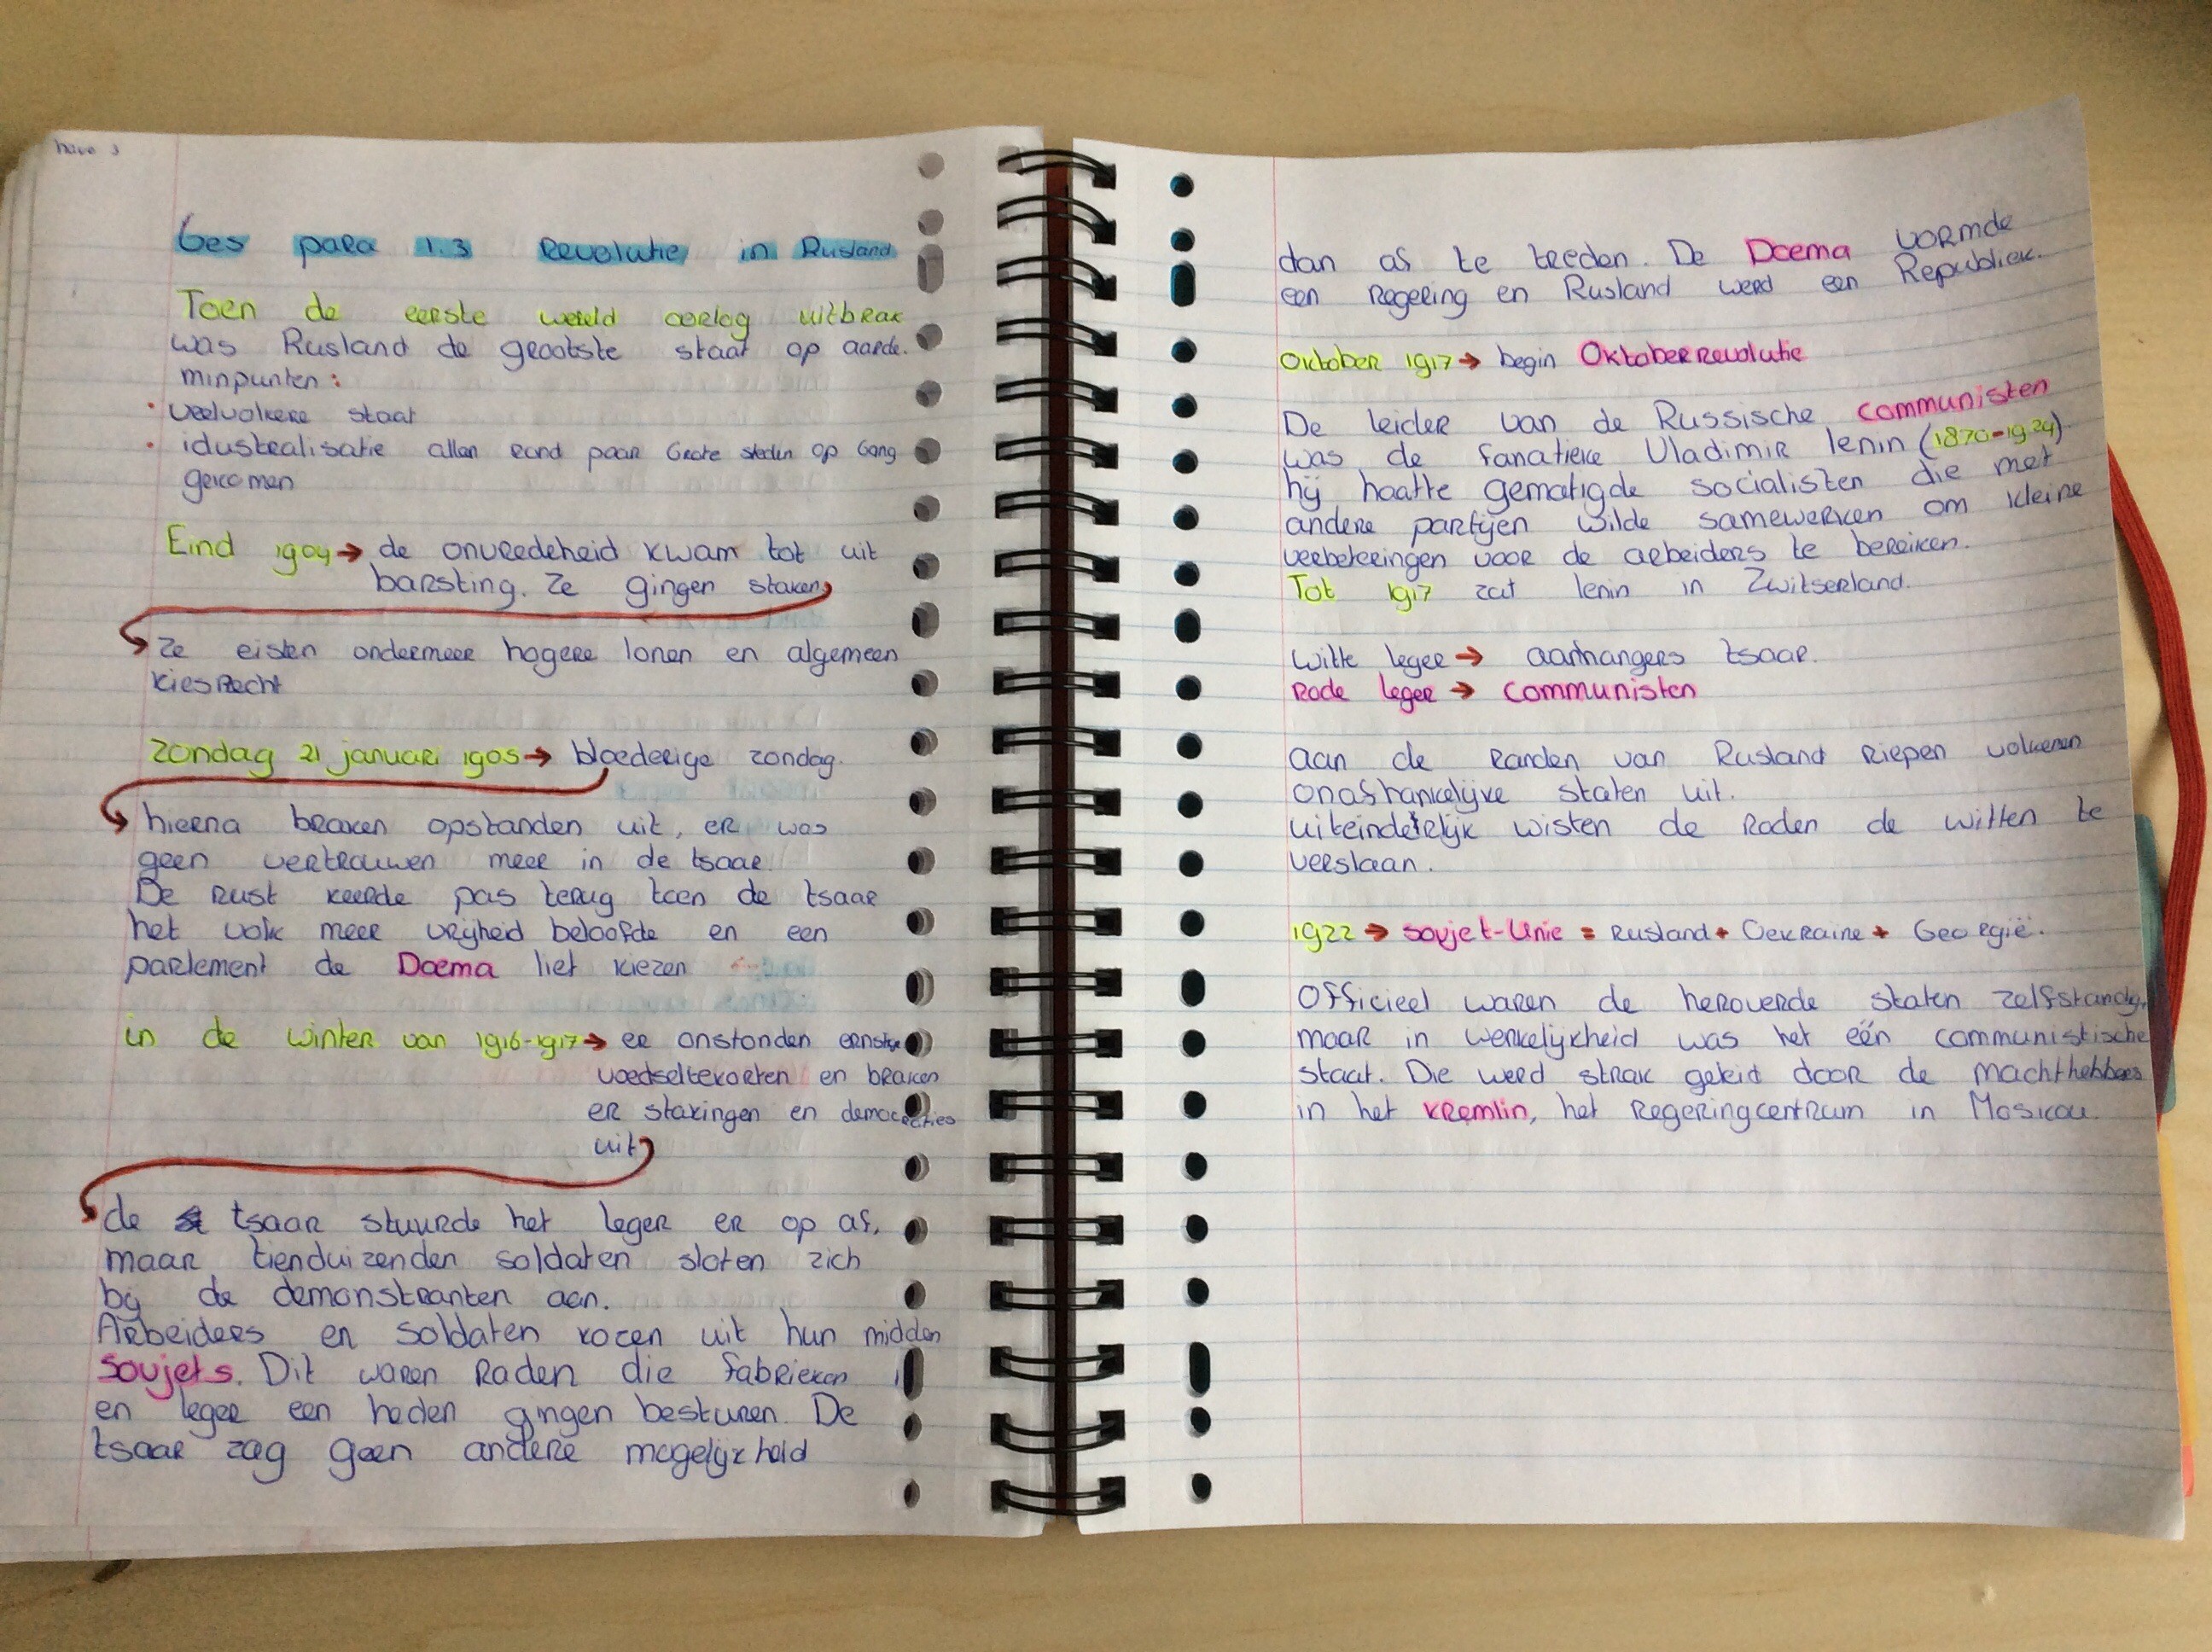 havo 3
Ges para 1.3 Revolutie in Rusland
Toen de eerste wereld oorlog uitbrak
was Rusland de grootste staat op aarde.
minpunten:
• veelvolkere staat
• idustealisatie allen rond paar Grote steden op Gang
gekomen
Eind 1904 → de onvredeheid kwam tot uit
barsting. Ze gingen staken
Ze eisten ondermeer hogere lonen en algemeen
kiesrecht
Zondag 21 januari 1905 → bloederige zondag.
hierna braken opstanden uit, er was
geen vertrouwen meer in de tsaar.
De rust keerde pas terug toen de tsaar
het volk meer vrijheid beloofde en een
parlement de Doema liet kiezen
in de winter van 1916-1917 → er onstonden ernstige
voedseltekorten en braken
er stakingen en democraties
uit
de tsaar stuurde het leger er op af,
maar tienduizenden soldaten sloten zich
bij de demonstranten aan.
Arbeiders en soldaten kozen uit hun midden
Sovjets. Dit waren Raden die fabrieken
en leger een heden gingen besturen. De
tsaar zag geen andere mogelijkheid
dan af te treden. De Doema vormde
een regering en Rusland werd een Republiek.
Oktober 1917 → begin Oktoberrevolutie
De leider van de Russische communisten
was de fanatieke Vladimir lenin (1870-1924)
hij haatte gematigde socialisten die met
andere partijen wilde samewerken om kleine
verbeteringen voor de arbeiders te bereiken.
Tot 1917 zat lenin in Zwitserland.
Witte leger → aanhangers tsaar.
Rode leger → communisten
aan de randen van Rusland riepen volkeren
onafhankelijke staten uit.
uiteindelijk wisten de Roden de witten te
verslaan.
1922 → Sovjet-Unie = Rusland + Oekraine + Georgië.
Officieel waren de heroverde staten zelfstandig,
maar in werkelijkheid was het één communistische
staat. Die werd strak geleid door de machthebbers
in het Kremlin, het Regeringcentrum in Moskou.